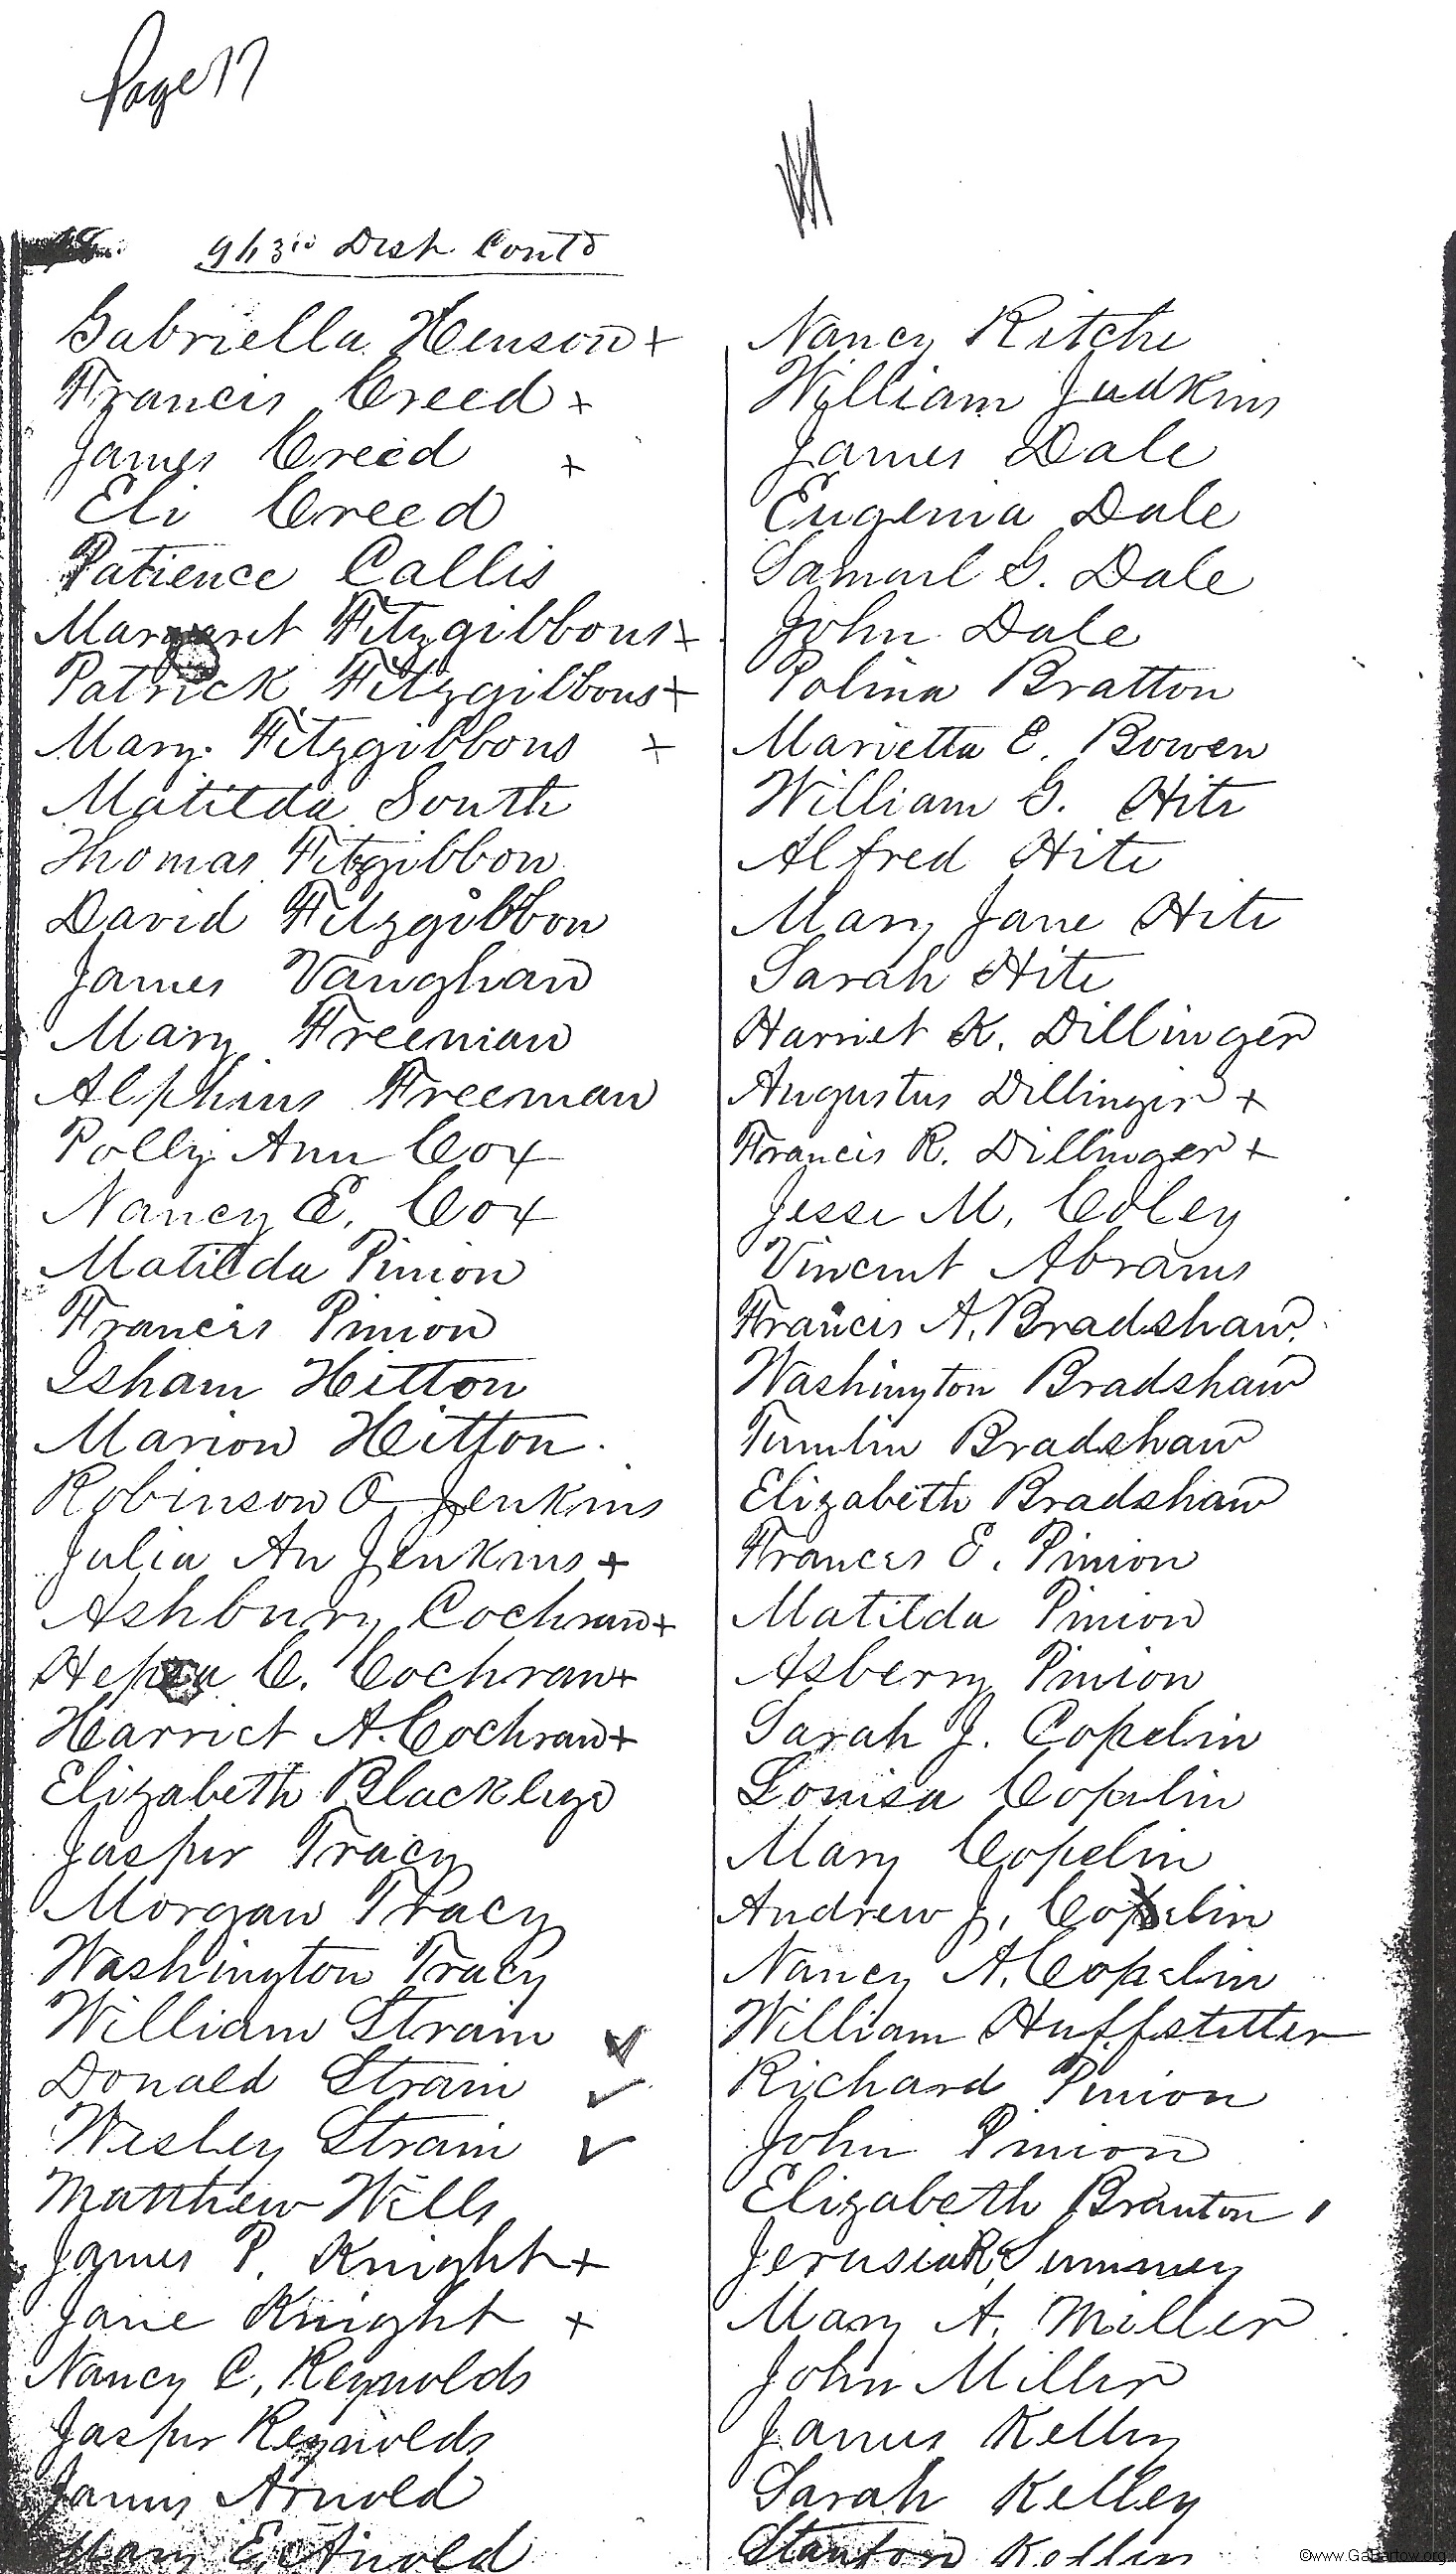 Page 17
943rd Dist Contd
Gabriella Henson +
Francis Creed +
James Creed +
Eli Creed
Patience Callis
Margaret Fitzgibbons +
Patrick Fitzgibbons +
Mary Fitzgibbons +
Matilda South
Thomas Fitzgibbon
David Fitzgibbon
James Vaughan
Mary Freeman
Alphius Freeman
Polly Ann Cox
Nancy E. Cox
Matilda Pinion
Francis Pinion
Isham Hitton
Marion Hitton.
Robinson O Jenkins
Julia An Jenkins +
Ashbury Cochran +
C. Cochran +
Harriet A. Cochran +
Elizabeth
Jasper Tracy
Morgan Tracy
Washington Tracy
William Strain ✓
Donald Strain ✓
Wesley Strain ✓
Matthew Wills
James P. Knight +
Jane Knight +
Nancy C. Reynolds
Jasper Reynolds
James Arnold
Mary E. Arnold
Nancy Ritche
William Judkins
James Dale
Eugenia Dale
Samuel G. Dale
John Dale
Polina Bratton
Marietta E. Bowen
William G. Hite
Alfred Hite
Mary Jane Hite
Sarah Hite
Harriet K. Dillinger
Augustus Dillinger +
Francis R. Dillinger +
Jesse M. Coley
Vincent Abrams
Francis A. Bradshaw
Washington Bradshaw
Tumlin Bradshaw
Elizabeth Bradshaw
Frances E. Pinion
Matilda Pinion
Asberry Pinion
Sarah J. Copelin
Louisa Copelin
Mary Copelin
Andrew J. Copelin
Nancy A. Copelin
William Huffstetter
Richard Pinion
John Pinion
Elizabeth Branton
Jerusia R Summey
Mary A. Miller
John Miller
James Kelly
Sarah Kelley
Stanton
©www.GaBartow.org